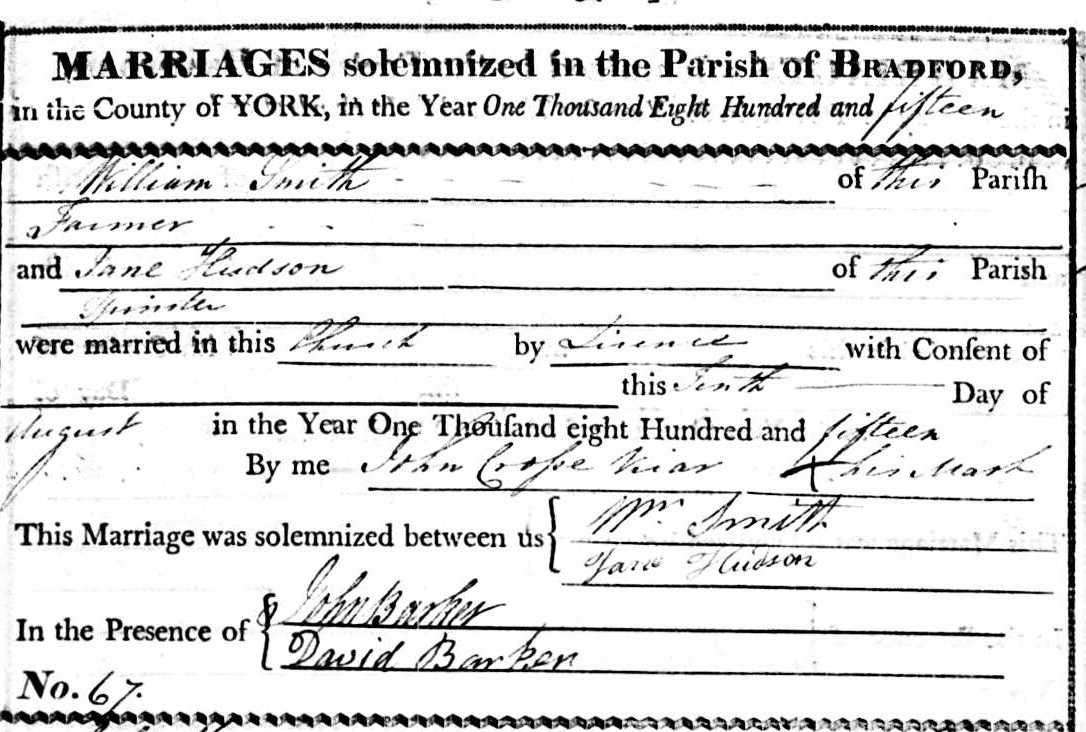 MARRIAGES solemnized in the Parish of BRADFORD,
in the County of YORK, in the Year One Thousand Eight Hundred and fifteen
William Smith of this Parish
Farmer
and Jane Hudson of this Parish
Spinster
were married in this Church by Licence with Consent of
this Tenth Day of
August in the Year One Thousand eight Hundred and fifteen
By me John Crosse Vicar + his Mark
This Marriage was solemnized between us { Wm Smith
Jane Hudson
In the Presence of { John Barker
David Barker
No. 67.